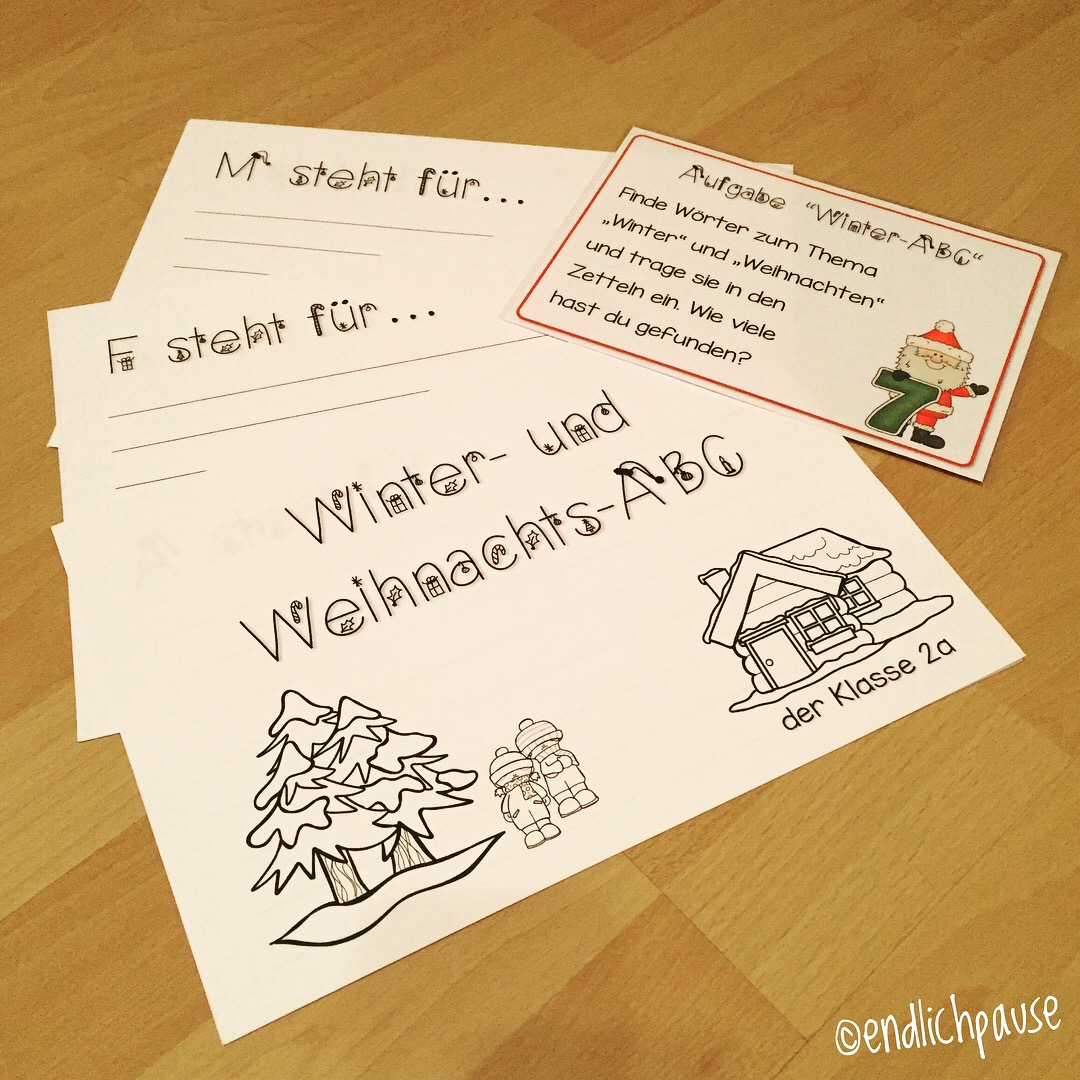 M steht für...
F steht für...
Aufgabe "Winter-ABC"
Finde Wörter zum Thema
„Winter“ und „Weihnachten“
und trage sie in den
Zetteln ein. Wie viele
hast du gefunden?
7
Winter- und
Weihnachts-ABC
der Klasse 2a
©endlichpause